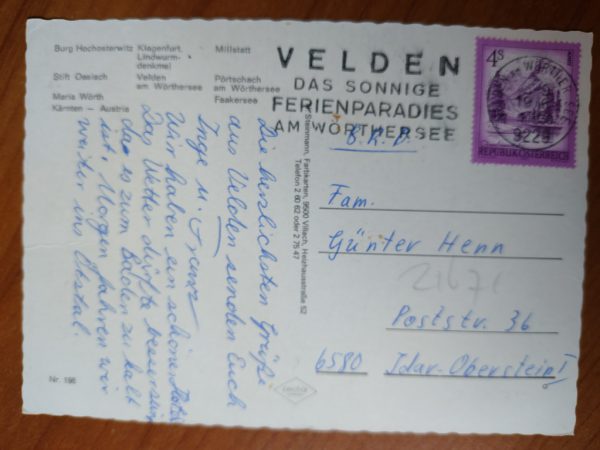 Burg Hochosterwitz Klagenfurt, Millstatt
Lindwurm-
denkmal
Stift Ossiach Velden Pörtschach
am Wörthersee am Wörthersee
Maria Wörth Faakersee
Kärnten – Austria
VELDEN
DAS SONNIGE
FERIENPARADIES
AM WÖRTHERSEE
4 S
9220
REPUBLIK ÖSTERREICH
Die herzlichsten Grüße
aus Velden senden Euch
Inge u. Franz
Wir haben ein schönes
Das Wetter dürfte besser sein
da es zum Baden zu kalt
ist, Morgen fahren wir
weiter ins
Steinmann, Farbkarten, 9500 Villach, Heizhausstraße 52
Telefon 2 60 62 oder 2 75 47
B.R.D.
Fam.
Günter Henn
Poststr. 36
6580 Idar-Oberstein I
Nr. 196